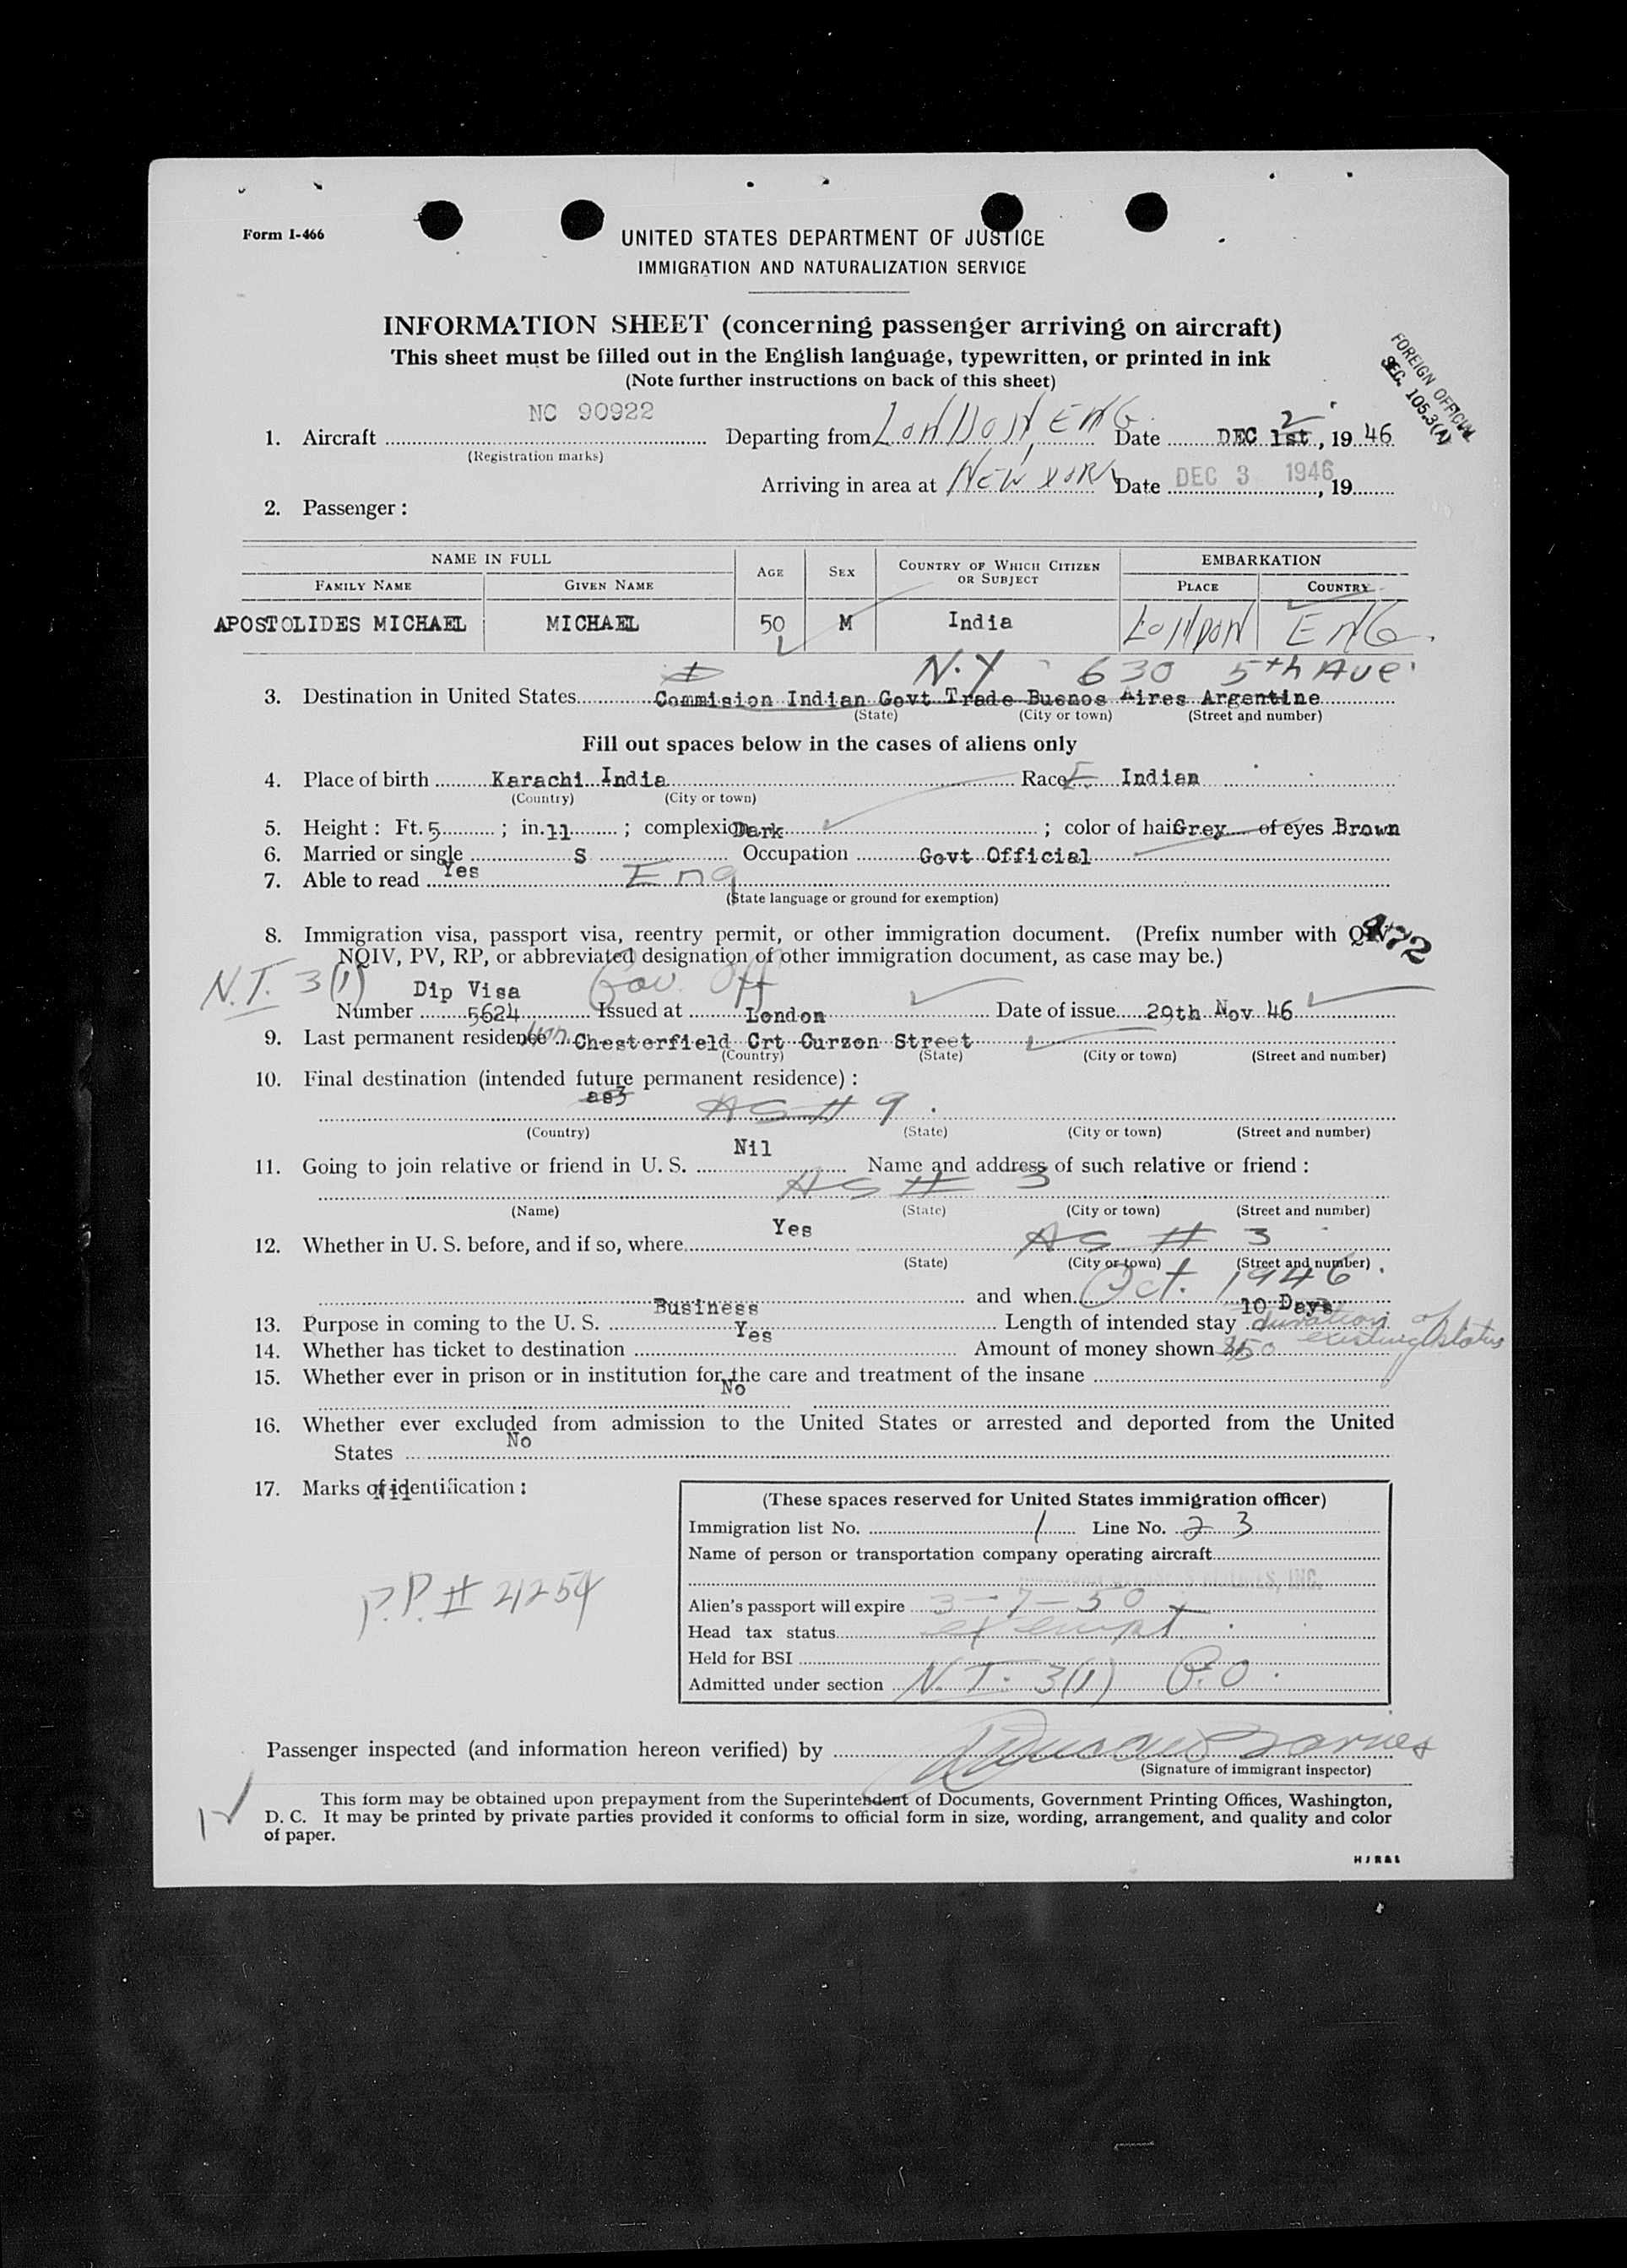 Form I-466
UNITED STATES DEPARTMENT OF JUSTICE
IMMIGRATION AND NATURALIZATION SERVICE
INFORMATION SHEET (concerning passenger arriving on aircraft)
This sheet must be filled out in the English language, typewritten, or printed in ink
(Note further instructions on back of this sheet)
FOREIGN OFFICIAL
SEC. 105.3(A)
NC 90922
1. Aircraft Departing from LONDON, ENG. Date DEC 1st 2, 1946
(Registration marks)
Arriving in area at NEW YORK Date DEC 3 1946, 19
2. Passenger:
NAME IN FULL AGE SEX COUNTRY OF WHICH CITIZEN OR SUBJECT EMBARKATION
FAMILY NAME GIVEN NAME PLACE COUNTRY
APOSTOLIDES MICHAEL MICHAEL 50 M India LONDON ENG.
N.Y 630 5th Ave
3. Destination in United States Commision Indian Govt Trade Buenos Aires Argentine
(State) (City or town) (Street and number)
Fill out spaces below in the cases of aliens only
4. Place of birth Karachi India Race E. Indian
(Country) (City or town)
5. Height: Ft. 5; in. 11; complexion Dark; color of hair Grey of eyes Brown
6. Married or single S Occupation Govt Official
7. Able to read Yes Eng
(State language or ground for exemption)
8. Immigration visa, passport visa, reentry permit, or other immigration document. (Prefix number with QIV,
NQIV, PV, RP, or abbreviated designation of other immigration document, as case may be.)
N.T. 3(1) Dip Visa Gov. Off
Number 5624 Issued at London Date of issue 29th Nov 46
9. Last permanent residence Lon. Chesterfield Crt Curzon Street
(Country) (State) (City or town) (Street and number)
10. Final destination (intended future permanent residence):
as3 AS # 9.
(Country) (State) (City or town) (Street and number)
11. Going to join relative or friend in U. S. Nil Name and address of such relative or friend:
AS # 3
(Name) (State) (City or town) (Street and number)
12. Whether in U. S. before, and if so, where Yes AS # 3
(State) (City or town) (Street and number)
and when Oct. 1946.
13. Purpose in coming to the U. S. Business Length of intended stay 10 Days duration of existing status
14. Whether has ticket to destination Yes Amount of money shown 350
15. Whether ever in prison or in institution for the care and treatment of the insane
No
16. Whether ever excluded from admission to the United States or arrested and deported from the United
States No
17. Marks of identification: Nil
(These spaces reserved for United States immigration officer)
Immigration list No. 1 Line No. 2 3
Name of person or transportation company operating aircraft
Alien's passport will expire 3-7-50
Head tax status exempt
Held for BSI
Admitted under section N.T. 3(1) P.O.
P.P. # 21254
Passenger inspected (and information hereon verified) by
(Signature of immigrant inspector)
This form may be obtained upon prepayment from the Superintendent of Documents, Government Printing Offices, Washington,
D. C. It may be printed by private parties provided it conforms to official form in size, wording, arrangement, and quality and color
of paper.